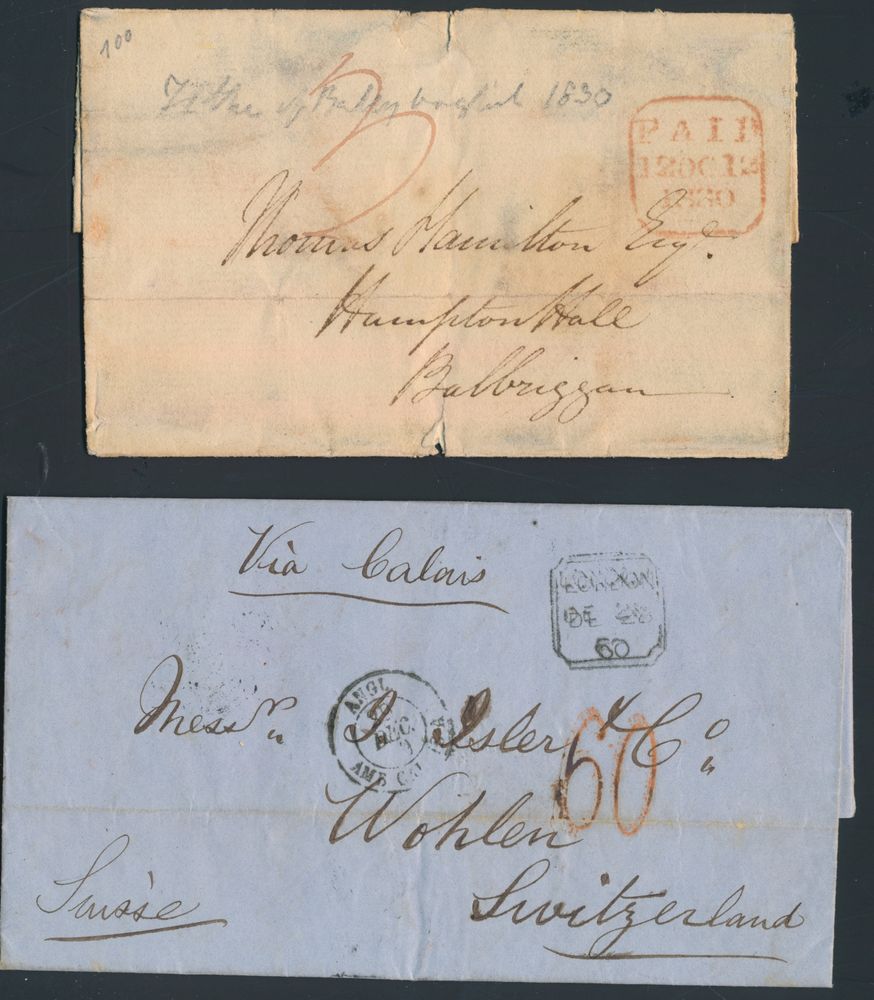 100
Tithe of Ballyboghil 1830
5
PAID
12OC12
1830
Thomas Hamilton Esqr.
Hampton Hall
Balbriggan
Via Calais
LONDON
DE 28
60
ANGL
DEC.
AMB. CALAIS
Messrs. J. Isler & Co.
60
Wohlen
Suisse
Switzerland